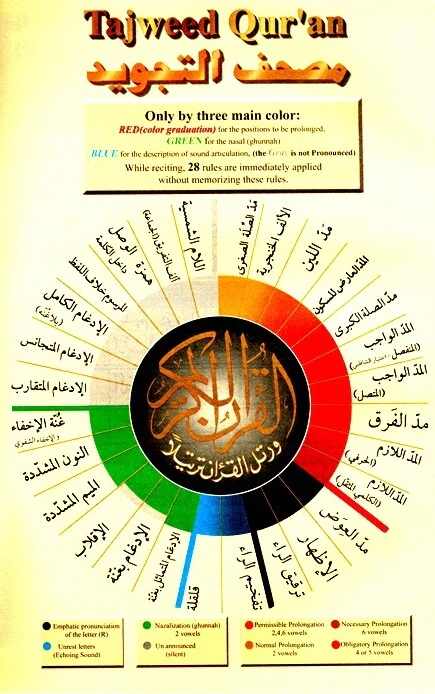 Tajweed Qur'an
مصحف التجويد
Only by three main color:
RED(color graduation) for the positions to be prolonged,
GREEN for the nasal (ghunnah)
BLUE for the description of sound articulation, (the Gray is not Pronounced)
While reciting, 28 rules are immediately applied
without memorizing these rules.
اللام الشمسية
ألف التفريق (الجماعة)
همزة الوصل
داخل الكلمة
المرسوم خلاف اللفظ
الإدغام الكامل
(بلا غنة)
الإدغام المتجانس
الإدغام المتقارب
غنّة الإخفاء
والإخفاء الشفوي
النون المشدّدة
الميم المشدّدة
الإقلاب
الإدغام بغنّة
الإدغام المتماثل بغنّة
قلقلة
تفخيم الراء
ترقيق الراء
الإظهار
مدّ العِوَض
المدّ اللازم
(الكلمي المثقل)
المدّ اللازم
(الحرفي)
مدّ الفَرق
المدّ الواجب
(المتصل)
المدّ الواجب
(المنفصل - اختيار الشاطبي)
مدّ الصلة الكبرى
المدّ العارض للسكون
مَدّ اللين
الألف الخنجرية
مَدّ الصِّلة الصغرى
القرآن الكريم
ورتل القرآن ترتيلاً
Emphatic pronunciation
of the letter (R)
Unrest letters
(Echoing Sound)
Nazalization (ghunnah)
2 vowels
Un announced
(silent)
Permissible Prolongation
2,4,6 vowels
Normal Prolongation
2 vowels
Necessary Prolongation
6 vowels
Obligatory Prolongation
4 or 5 vowels